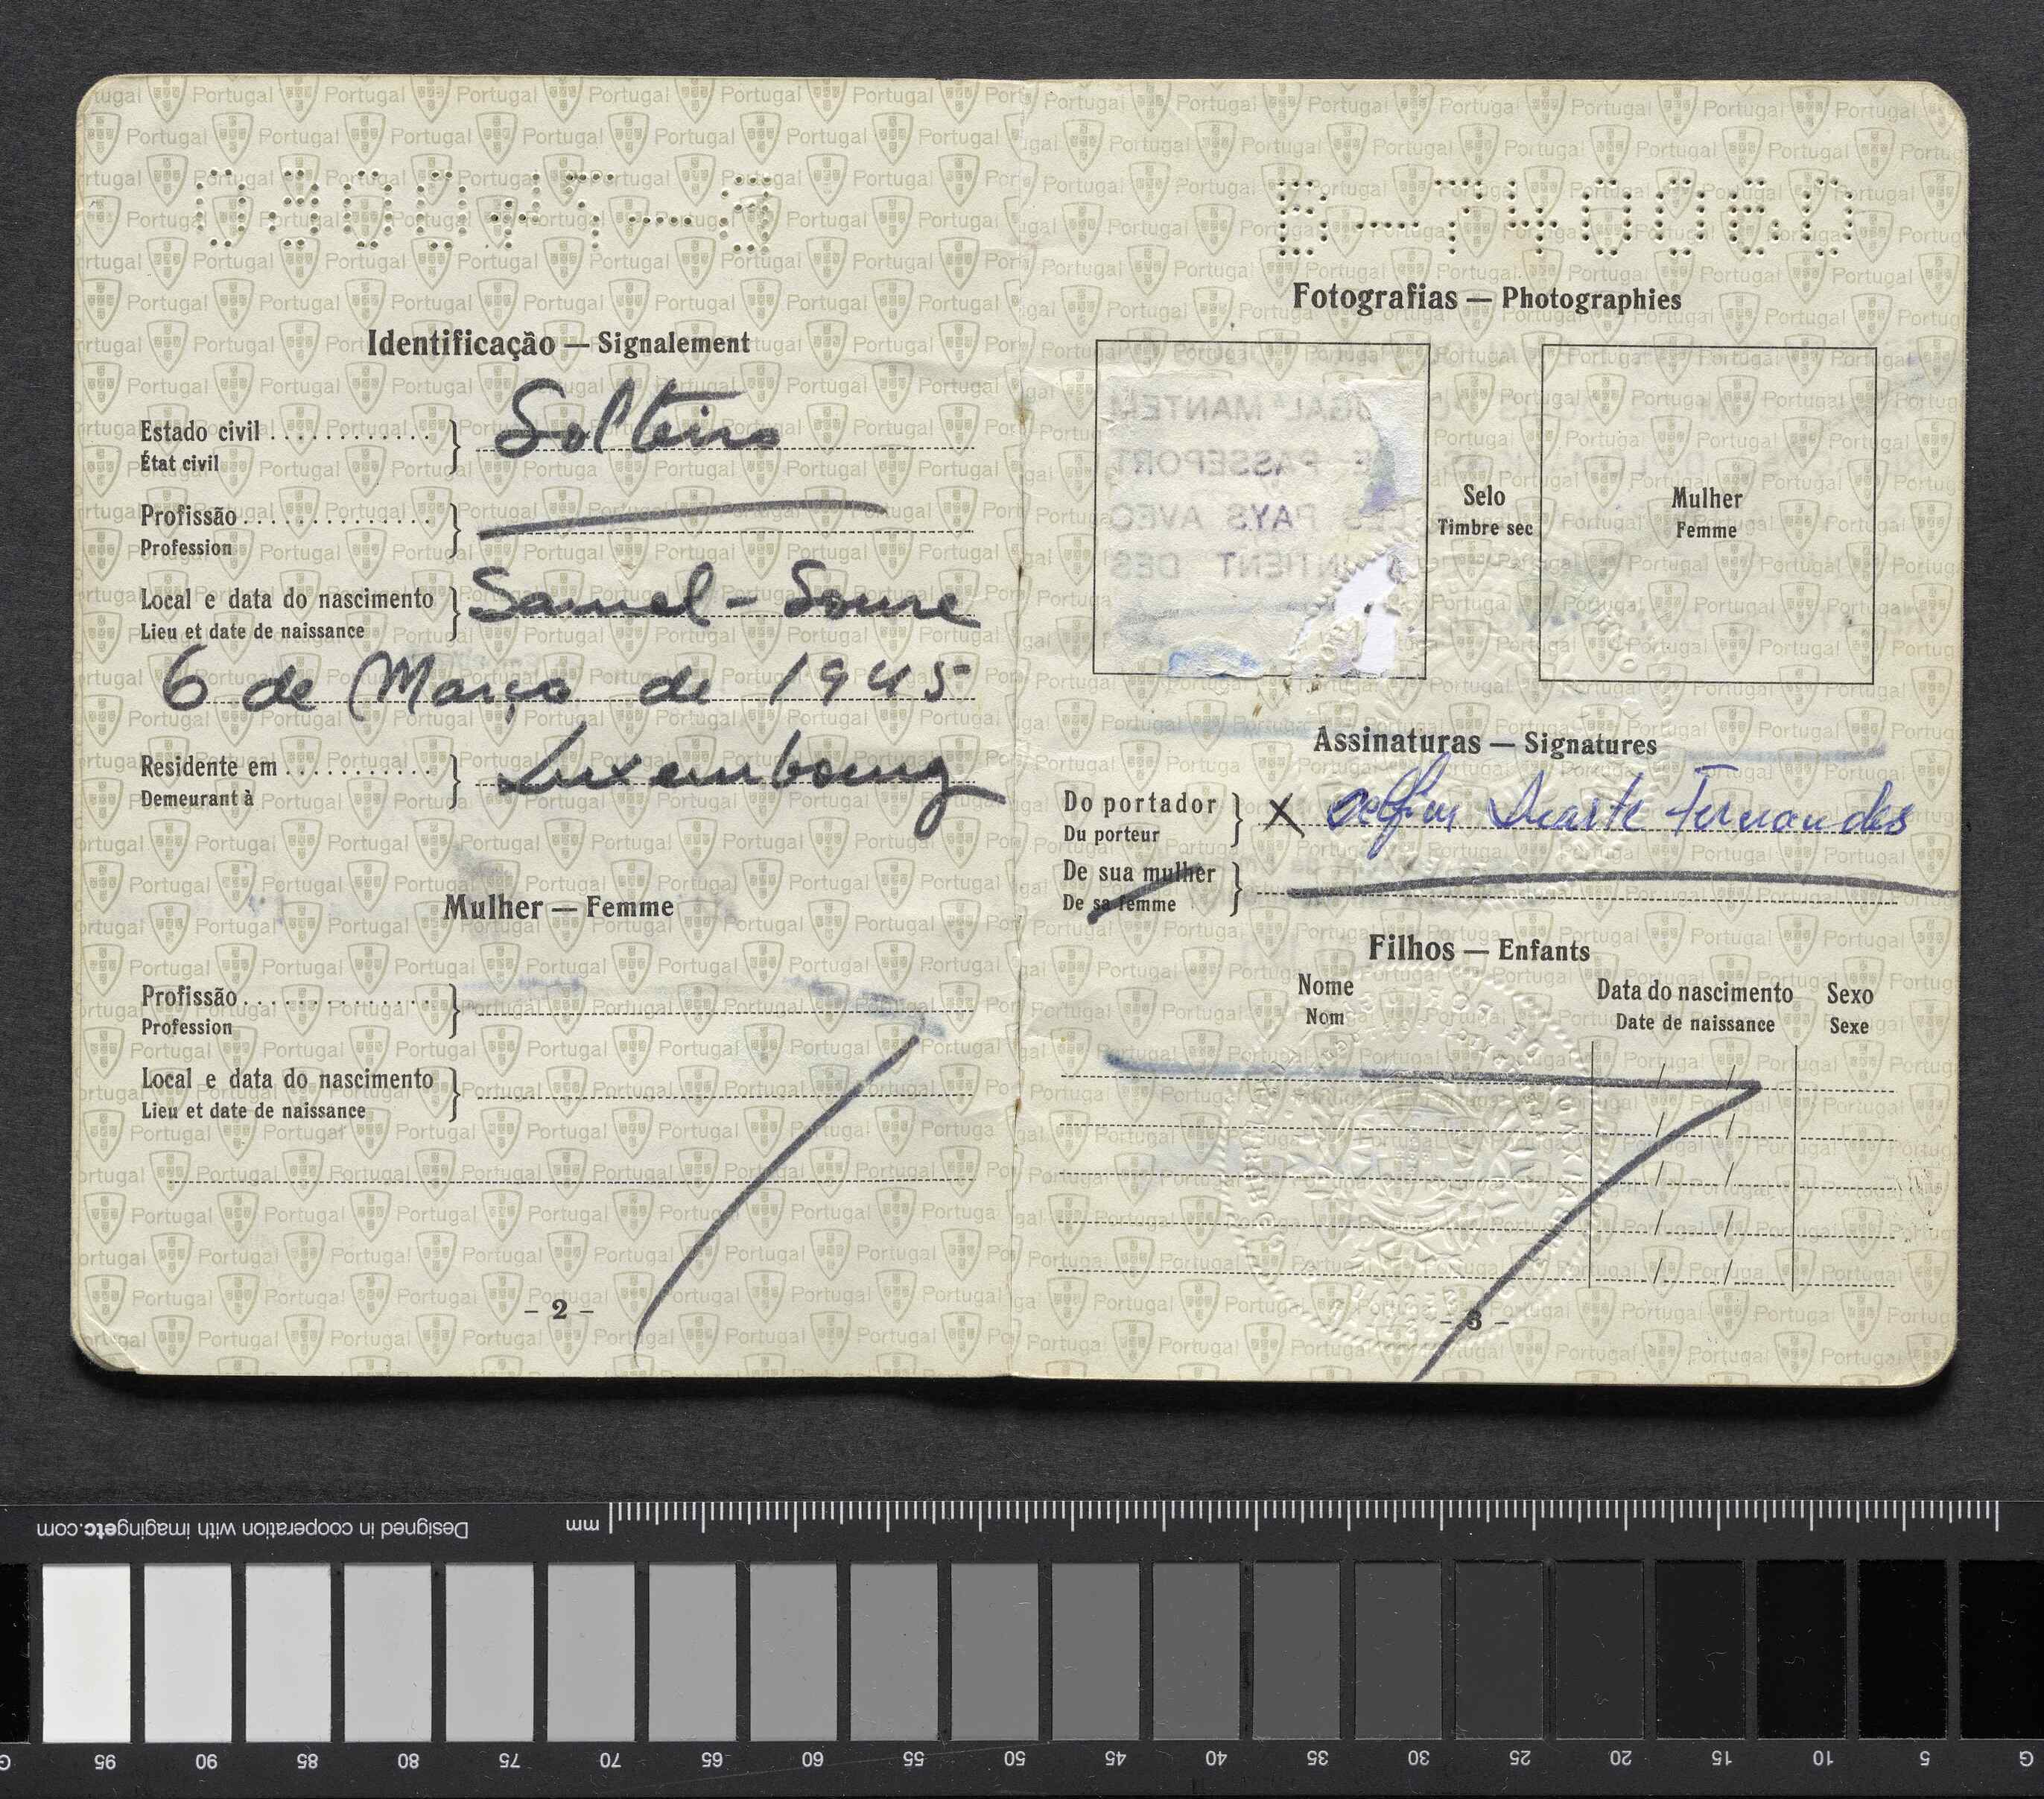 B-740060
Identificação — Signalement
Estado civil ............ } Solteiro
État civil
Profissão ............... }
Profession
Local e data do nascimento } Samuel - Soure
Lieu et date de naissance
6 de Março de 1945
Residente em ........... } Luxembourg
Demeurant à
Mulher — Femme
Profissão ............... }
Profession
Local e data do nascimento }
Lieu et date de naissance
- 2 -
B-740060
Fotografias — Photographies
UGAL" MANTEM
E PASSEPORT
LES PAYS AVEC
INTIENT DES
Selo
Timbre sec
Mulher
Femme
Assinaturas — Signatures
Do portador } X Delfim Duarte Fernandes
Du porteur
De sua mulher }
De sa femme
Filhos — Enfants
Nome Data do nascimento Sexo
Nom Date de naissance Sexe
- 3 -
Designed in cooperation with imagingetc.com mm
95 90 85 80 75 70 65 60 55 50 45 40 35 30 25 20 15 10 5 G